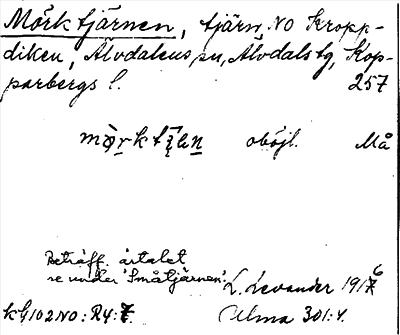 Mörktjärnen, tjärn, NO Kropp-
diken, Älvdalens sn, Älvdals tg, Kop-
parbergs l. 257
oböjl. Må
Beträff. årtalet
se under 'Småtjärnen'.
L. Levander 1916
kG102NO:R4:7.
Ulma 301:4.